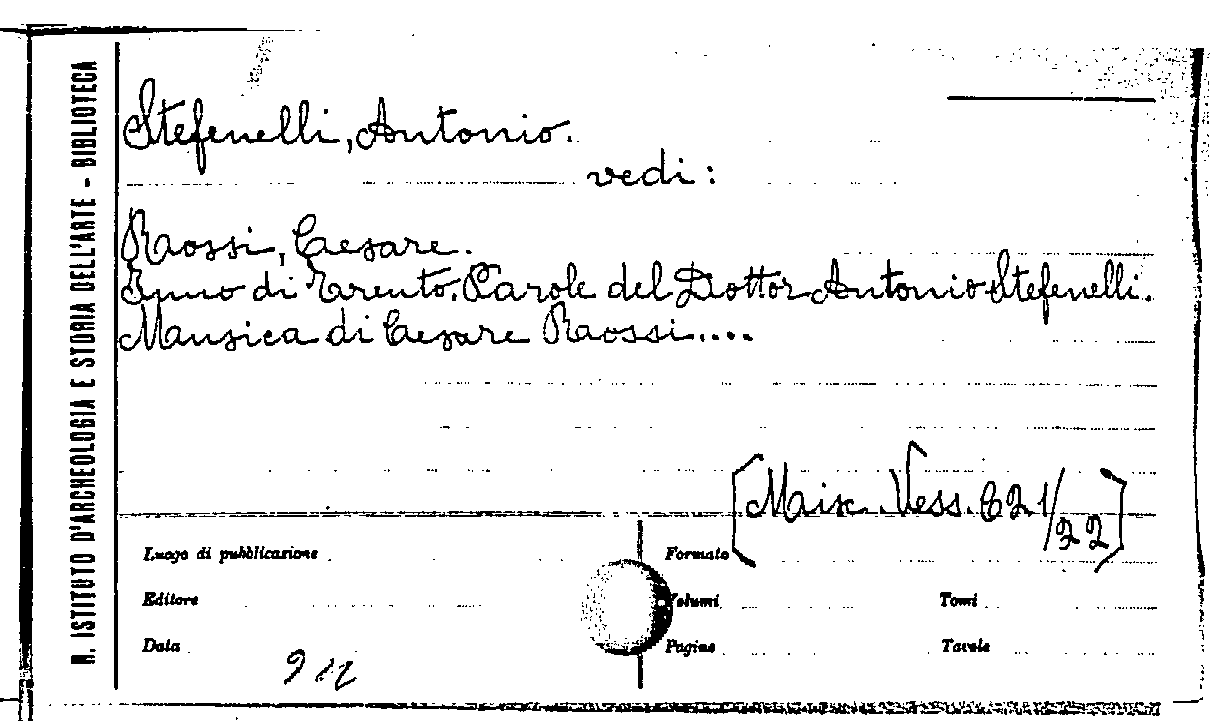 R. ISTITUTO D'ARCHEOLOGIA E STORIA DELL'ARTE - BIBLIOTECA
Stefenelli, Antonio.
vedi:
Raossi, Cesare.
Inno di Trento. Parole del Dottor Antonio Stefenelli.
Musica di Cesare Raossi....
[Misc. Vess. C 21/22]
Luogo di pubblicazione
Formato
Editore
Volumi
Tomi
Data
Pagine
Tavole